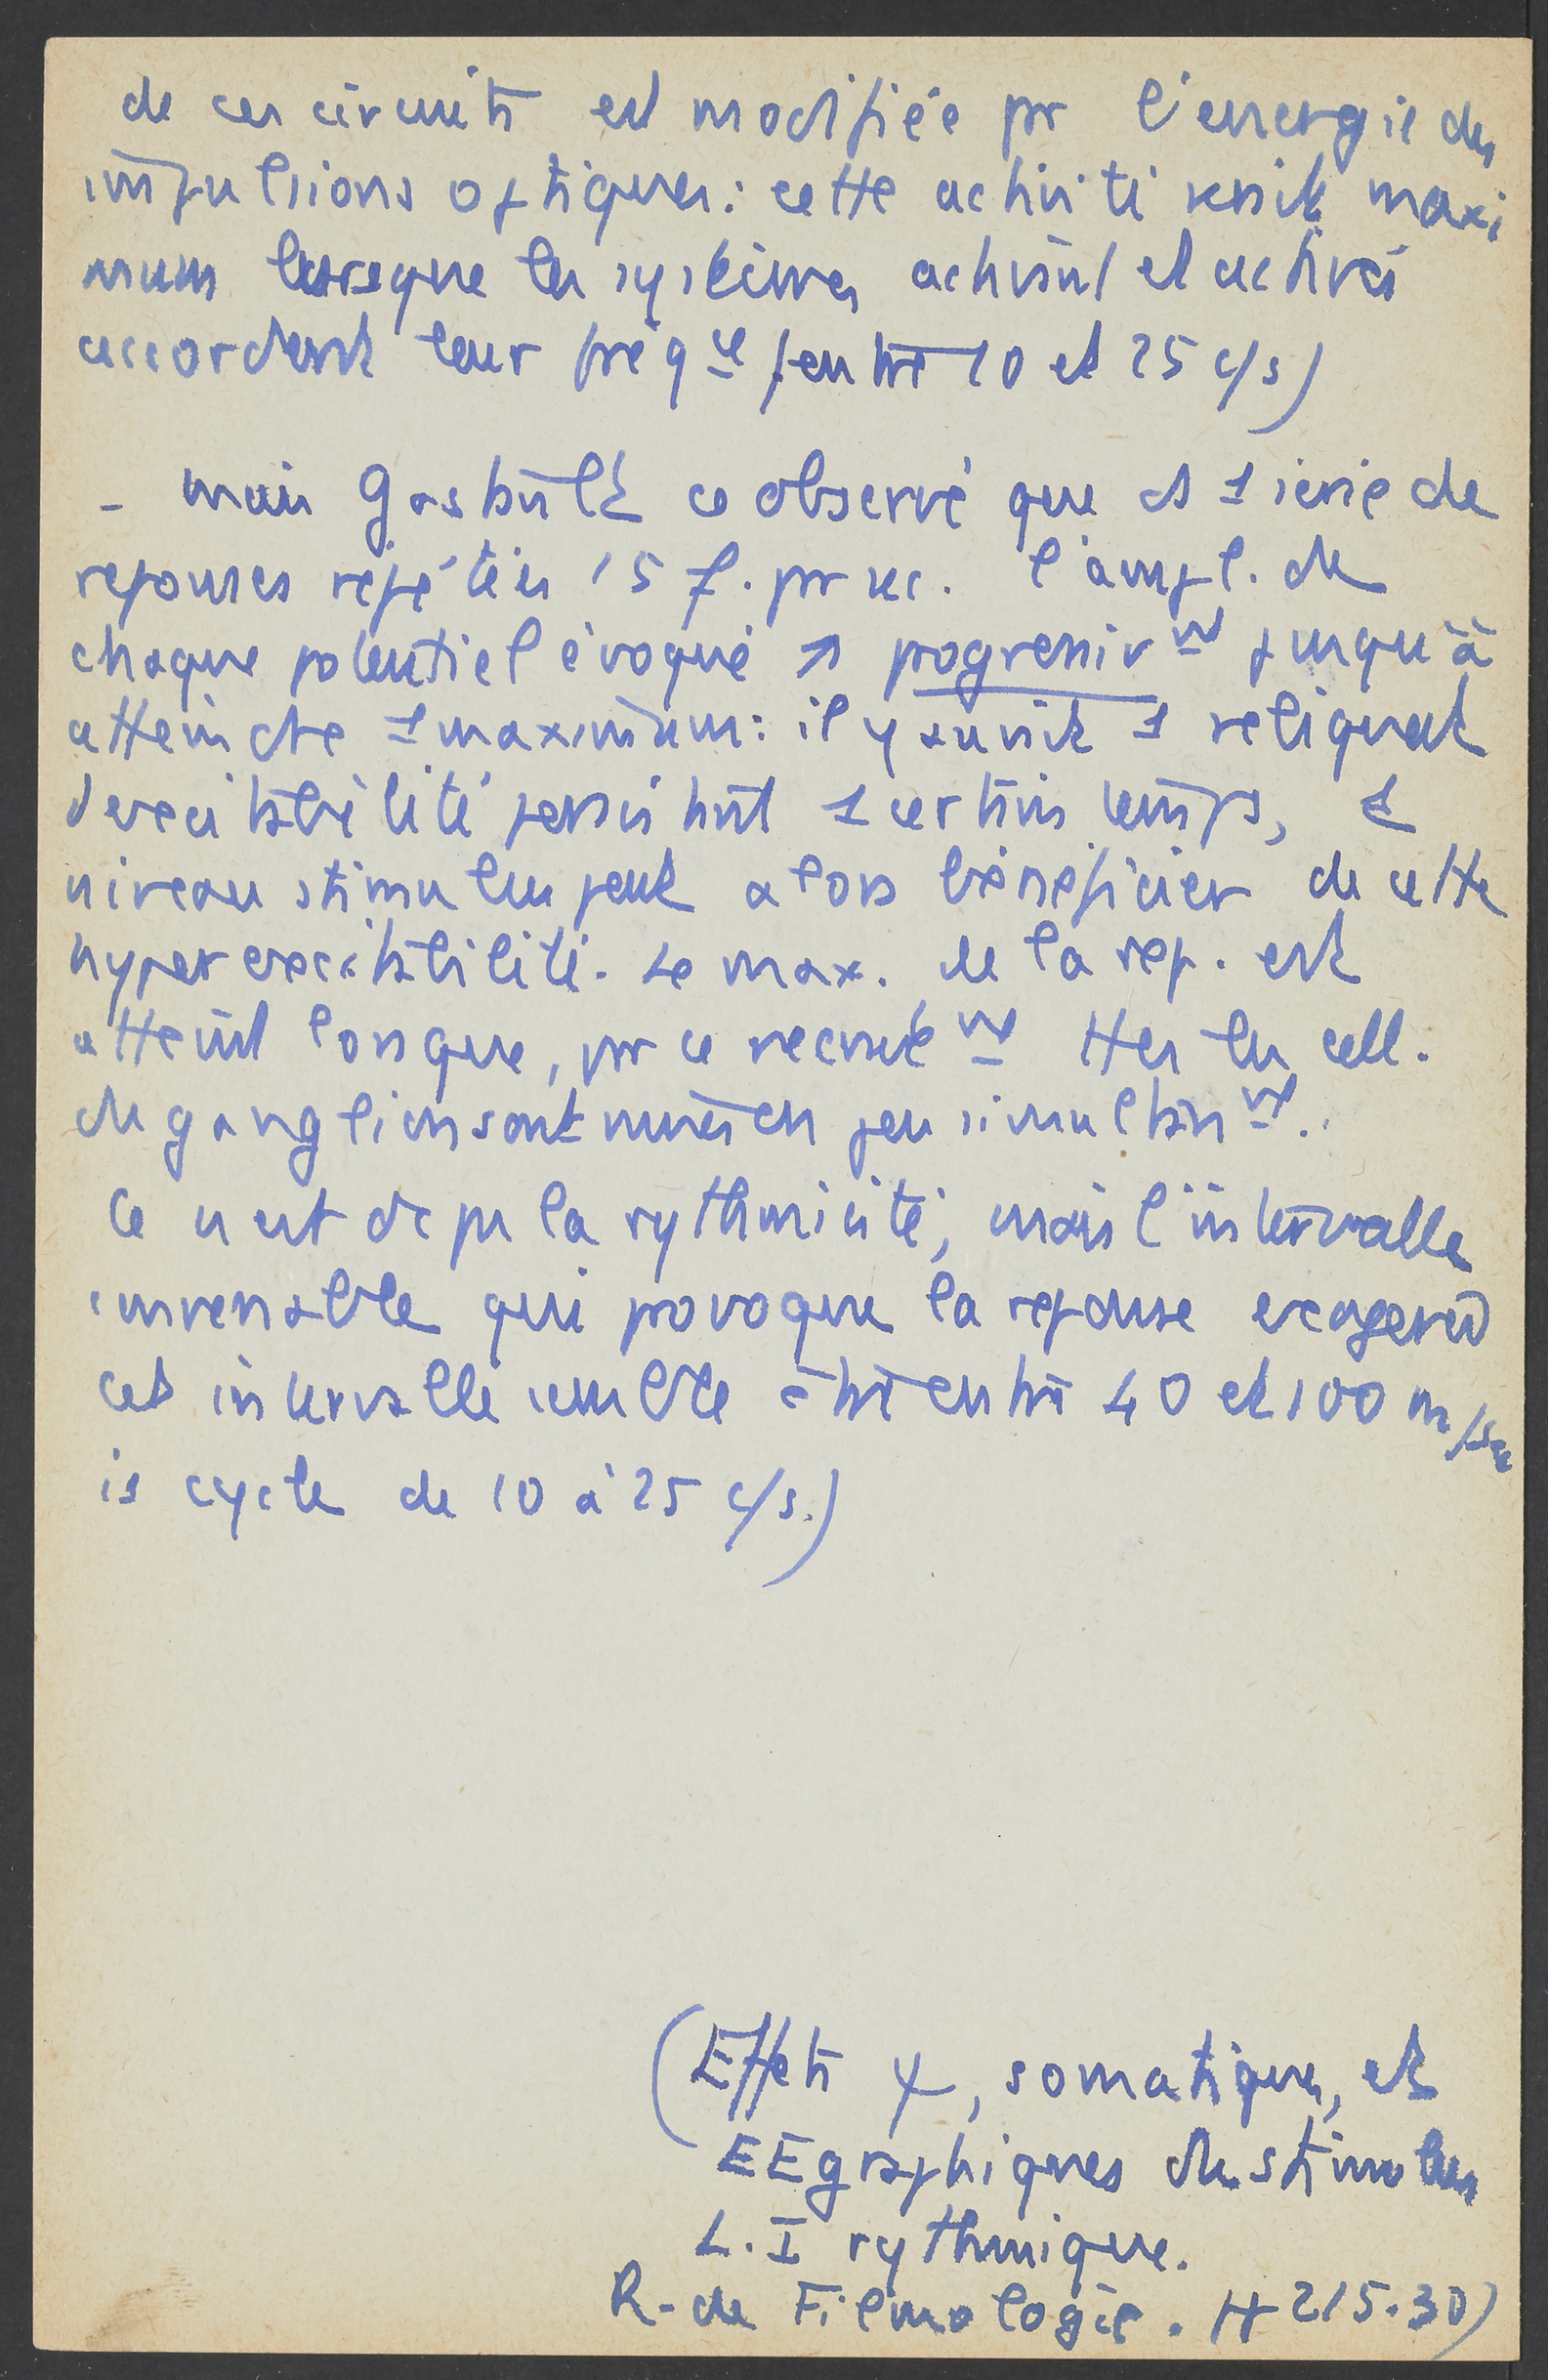 de ces circuits est modifiée pr l'energie des
impulsions optiques: cette activité serait maxi
mum lorsque les systèmes activant et activés
accordent leur fréq ce (entre 10 et 25 c/s)
- mais Gastault a observé que ds 1 série de
reponses répétées 15 f. pr sec. l'ampl. de
chaque potentiel évoqué ↗ progressiv nt jusqu'à
atteindre 1 maximum: il y aurait 1 reliquat
d'excitabilité persistant 1 certain temps, 1
niveau stimulus peut alors bénéficier de cette
hyperexcitabilité. Le max. de la rep. est
atteint lorsque, pr ce recrut nt ttes les cell.
du ganglion sont mises en jeu simultan nt.
Ce n'est dc pas la rythmicité, mais l'intervalle
convenable qui provoque la reponse exagerée
cet intervalle semble être entre 40 et 100 m/sec
is cycle de 10 à 25 c/s.)
(Effets ψ, somatiques, et
EEgraphiques du stimulus
L. I rythmique.
R. de Filmologie. H 215.30)